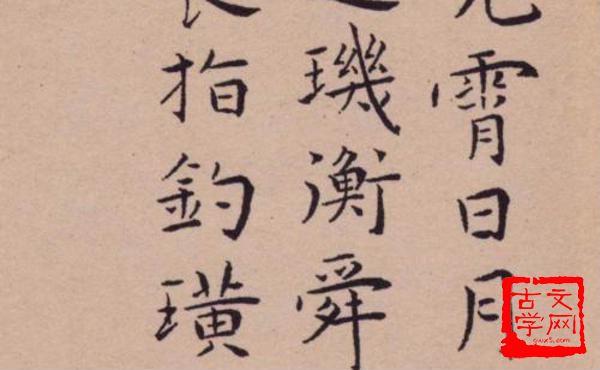 霄日月
璣衡舜
指釣璜
古文
学网
gwx5.com